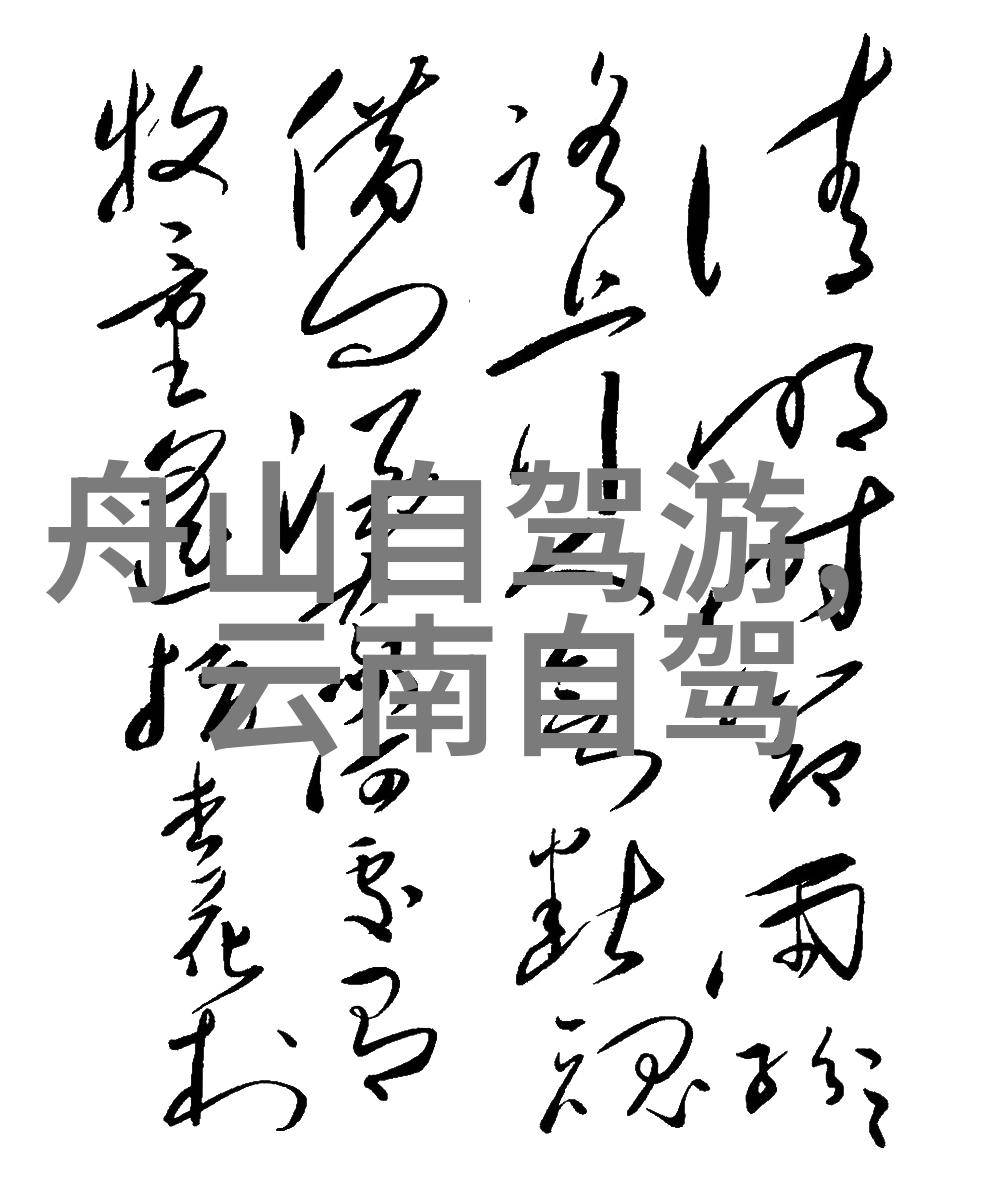 清明时节雨纷纷
路上行人欲断魂
借问酒家何处有
牧童遥指杏花村
舟山自驾游,
云南自驾